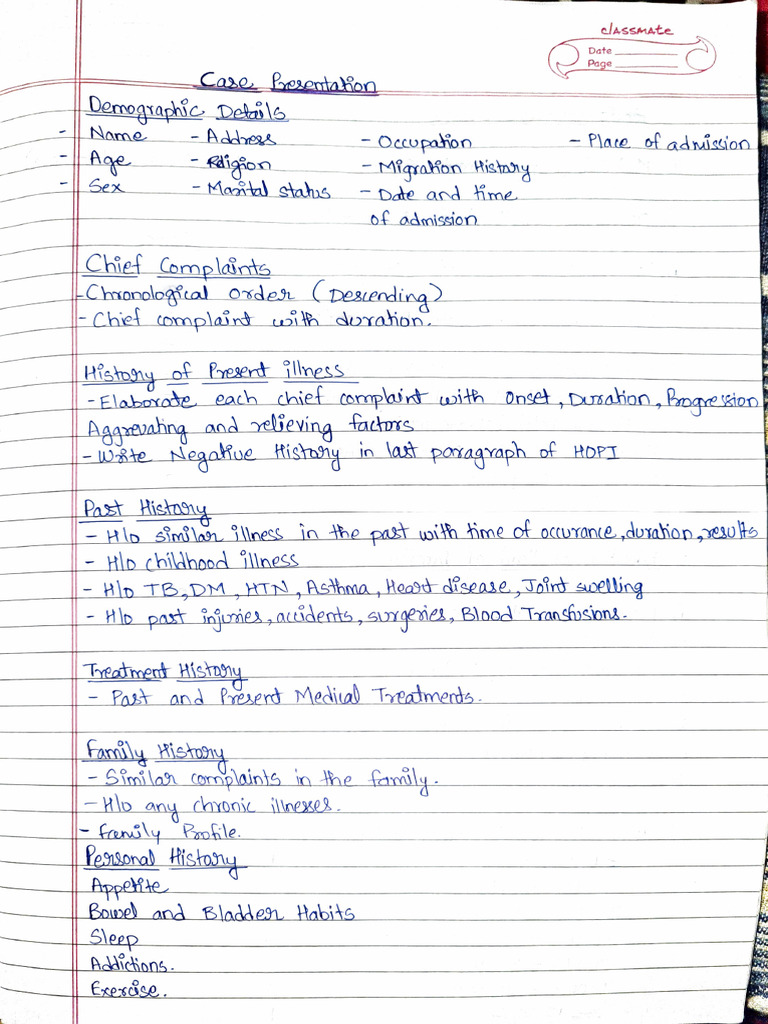 classmate
Date
Page
Case Presentation
Demographic Details
- Name - Address - Occupation - Place of admission
- Age - Religion - Migration History
- Sex - Marital status - Date and time
of admission
Chief Complaints
- Chronological order (Descending)
- Chief complaint with duration.
History of Present illness
- Elaborate each chief complaint with onset, Duration, Progression
Aggrevating and relieving factors
- Write Negative History in last paragraph of HOPI
Past History
- H/o similar illness in the past with time of occurance, duration, results
- H/o childhood illness
- H/o TB, DM, HTN, Asthma, Heart disease, Joint swelling
- H/o past injuries, accidents, surgeries, Blood Transfusions.
Treatment History
- Past and Present Medical Treatments.
Family History
- Similar complaints in the family.
- H/o any chronic illnesses.
- Family Profile.
Personal History
Appetite
Bowel and Bladder Habits
Sleep
Addictions.
Exercise.